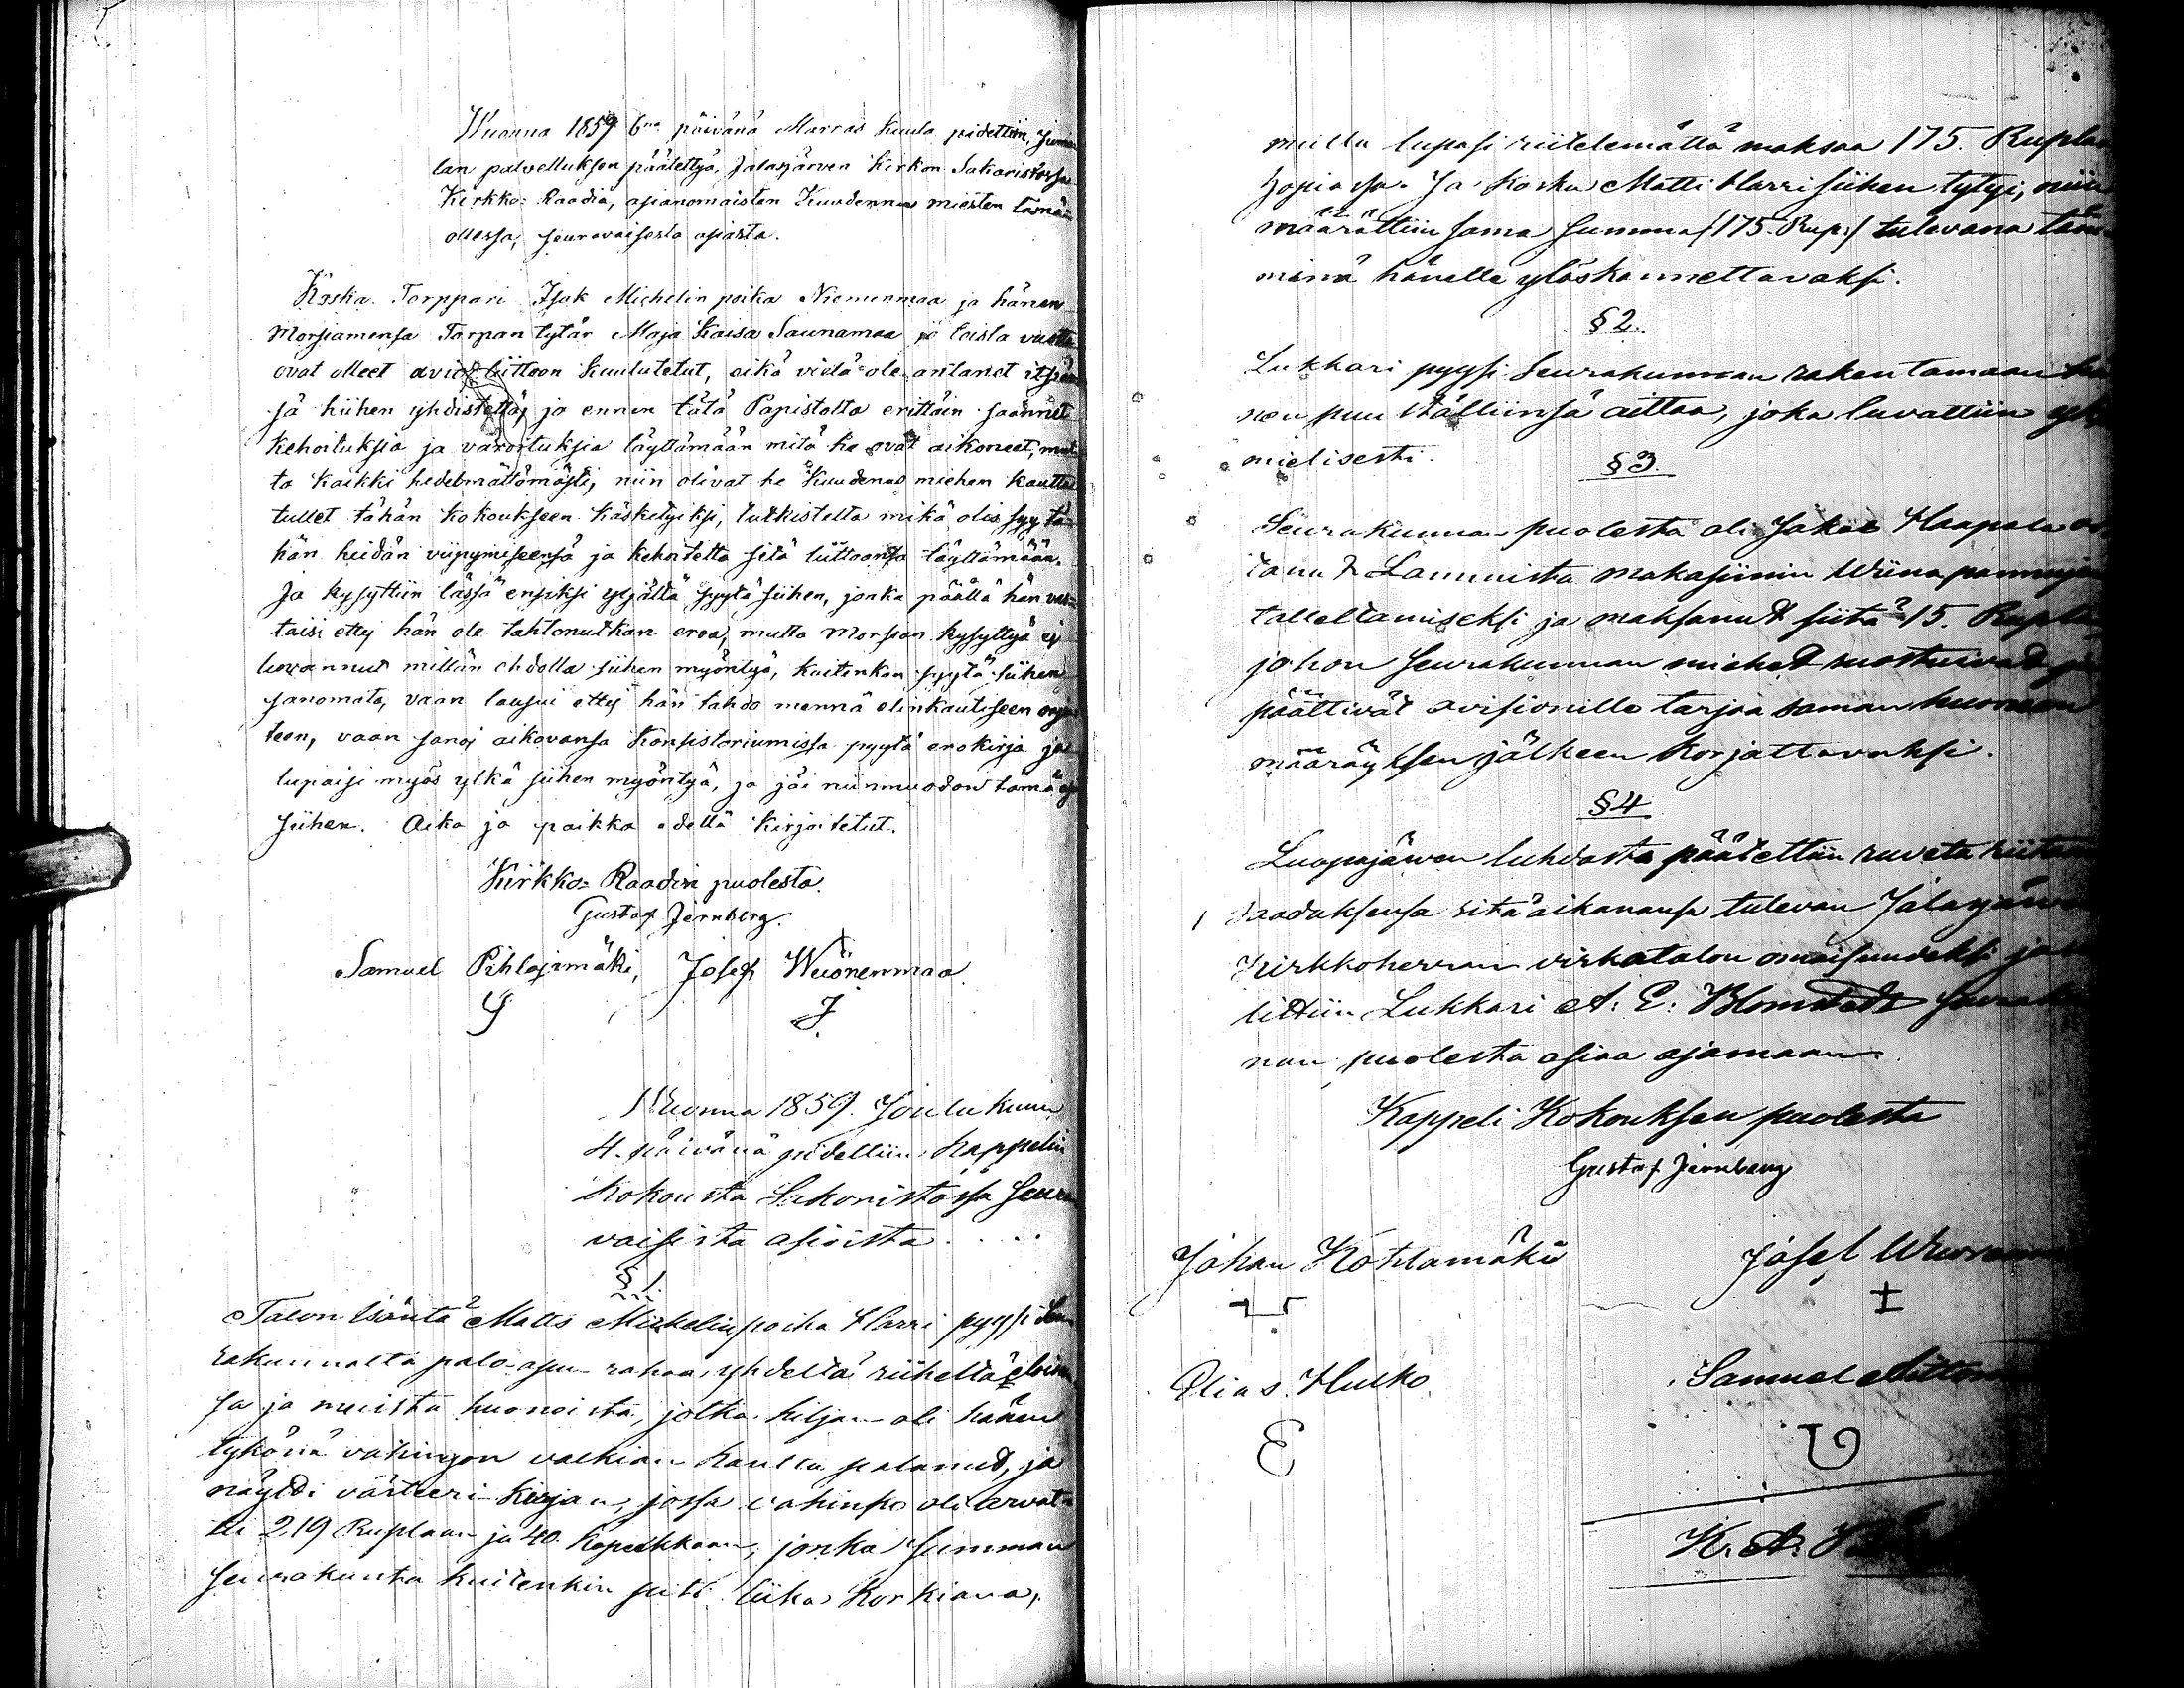 Wuonna 1859 6na päivänä Marras kuula pidettiin, Juma
lan palvelluksen päätettyä, Jalasjärven Kirkon Sakaristossa
Kirkko-Raadia, asianomaisten Kuudennus miesten läsnä
ollessa, seuravaisesta asiasta.
Koska Torppari Isak Michelin poika Niemenmaa ja hänen
Morsiamensa Torpan tytär Maja Kaisa Saunamaa jo toista vuotta
ovat olleet avioliittoon kuulutetut, eikä vielä ole antanet itsiän
sä hiihen yhdistettää, ja ennen tätä Papistolta erittäin saannet
kehoituksia ja varoituksia täyttämään mitä he ovat aikoneet, mut
ta kaikki hedelmättömästi, niin olivat he Kuudenus miehen kautta
tullet tähän kokoukseen käsketyiksi, tutkistella mikä olis syy tä
hän heidän viipymiseensä ja kehoitetta sitä liittoansa täyttämään.
Ja kysyttiin lässä ensiksi yljältä syytä siihen, jonka päällä hän vas
taisi ettej hän ole tahtonutkan eroa, mutta morsian kysyttyä ej
luvannut millän ehdolla siihen myöntyä, kuitenkan syytä siihen
sanomata, vaan lausui ettej hän tahdo mennä elinkautiseen onjet
teen, vaan sanoj aikovansa Konsistoriumissa pyytä erokirja ja
lupaisi myös ylkä siihen myöntyä, ja jäi niinmuodon tämä asia
siihen. Aika ja paikka edellä kirjoitetut.
Kirkko-Raadin puolesta
Gustaf Jernberg.
Samuel Pihlajamäki, Josef Wuorenmaa
S J
Wuonna 1859. Joulu kuun
4. päivänä pidettiin Kappelin
Kokousta Sakaristossa seura
vaisista asioista.
§ 1.
Talon Isäntä Matts Mickelinpoika Harri pyysi Seu
rakunnalta palo-apu-rahaa, yhdeltä riiheltä eloin
sa ja muista huoneista, jotka hiljan oli hänen
tykönä vahingon valkian kautta palanud, ja
näytti värteeri-kirjan, jossa vahinko oli arvat
tu 219 Ruplaan ja 40. kopeekkaan, jonka summan
seurakunta kuitenkin piti liika korkiana,
mutta lupasi riitelemättä maksaa 175. Ruplaa
hopiassa. Ja koska Matti Harri siihen tytyi, niin
määrättiin sama summa /175. Rup:/ tulevana tam
mena hänelle ylöskannettavaksi.
§ 2.
Lukkari pyysi Seurakunnan rakentamaan
nen puu tälliinsä aittaa, joka luvattiin yksi
mielisesti.
§ 3.
Seurakunnan puolesta oli Jakob Haapala os
tanut Lammista makasiinin Wiina pannujen
talleltamiseksi ja maksanut siitä 15. Rupla,
johon Seurakunnan miehet suostuivat ja
päättivät avisionille tarjoa saman huoneen
määräyksen jälkeen korjattavaksi.
§ 4
Luopajärven luhdasta päätettiin ruveta riitem
saadaksensa sitä aikanansa tulevan Jalasjärven
Kirkkoherran virkatalon omaisuudeksi ja
littiin Lukkari A: E: Blomstedt seuraku
nan puolesta asiaa ajamaan.
Kappeli Kokouksen puolesta
Gustaf Jernberg
Johan Kohtamäki Josef Wuoren
Elias Hulko Samuel
E
K. A.